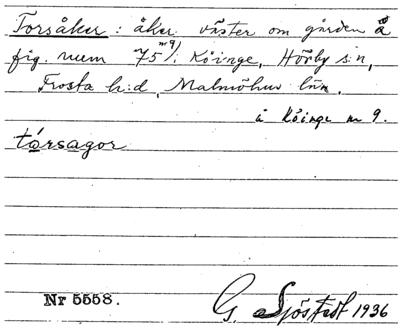 Torsåker : åker väster om gården å
fig. num 75 m 9/: Köinge, Hörby s:n,
Frosta h:d, Malmöhus län.
å Köinge n 9.
tårsagor
Nr 5558.
G. Sjöstedt 1936